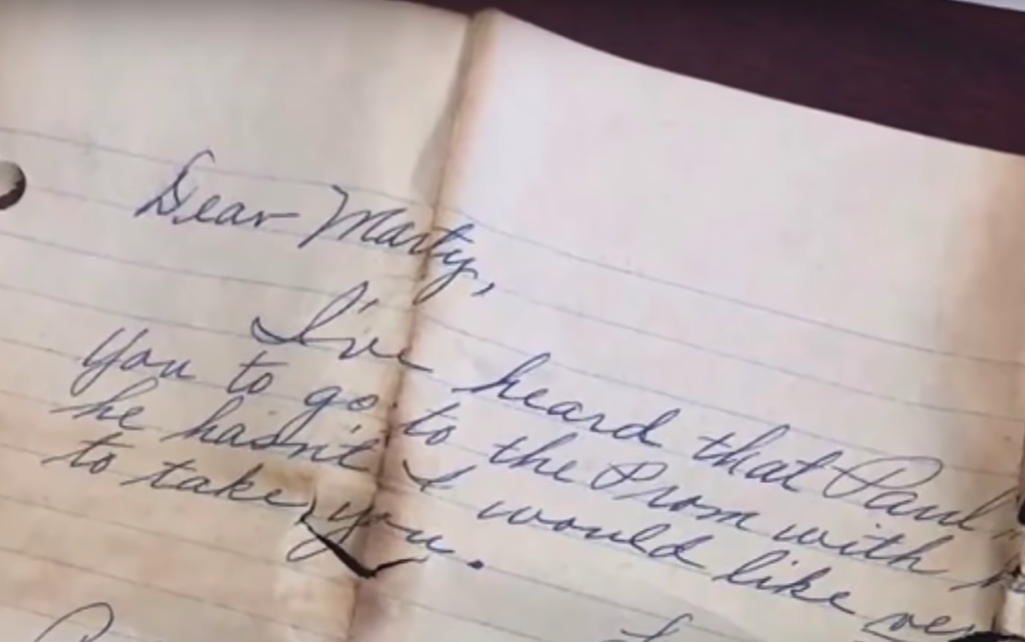 Dear Marty,
I've heard that Paul
you to go to the Prom with
he hasn't I would like
to take you.